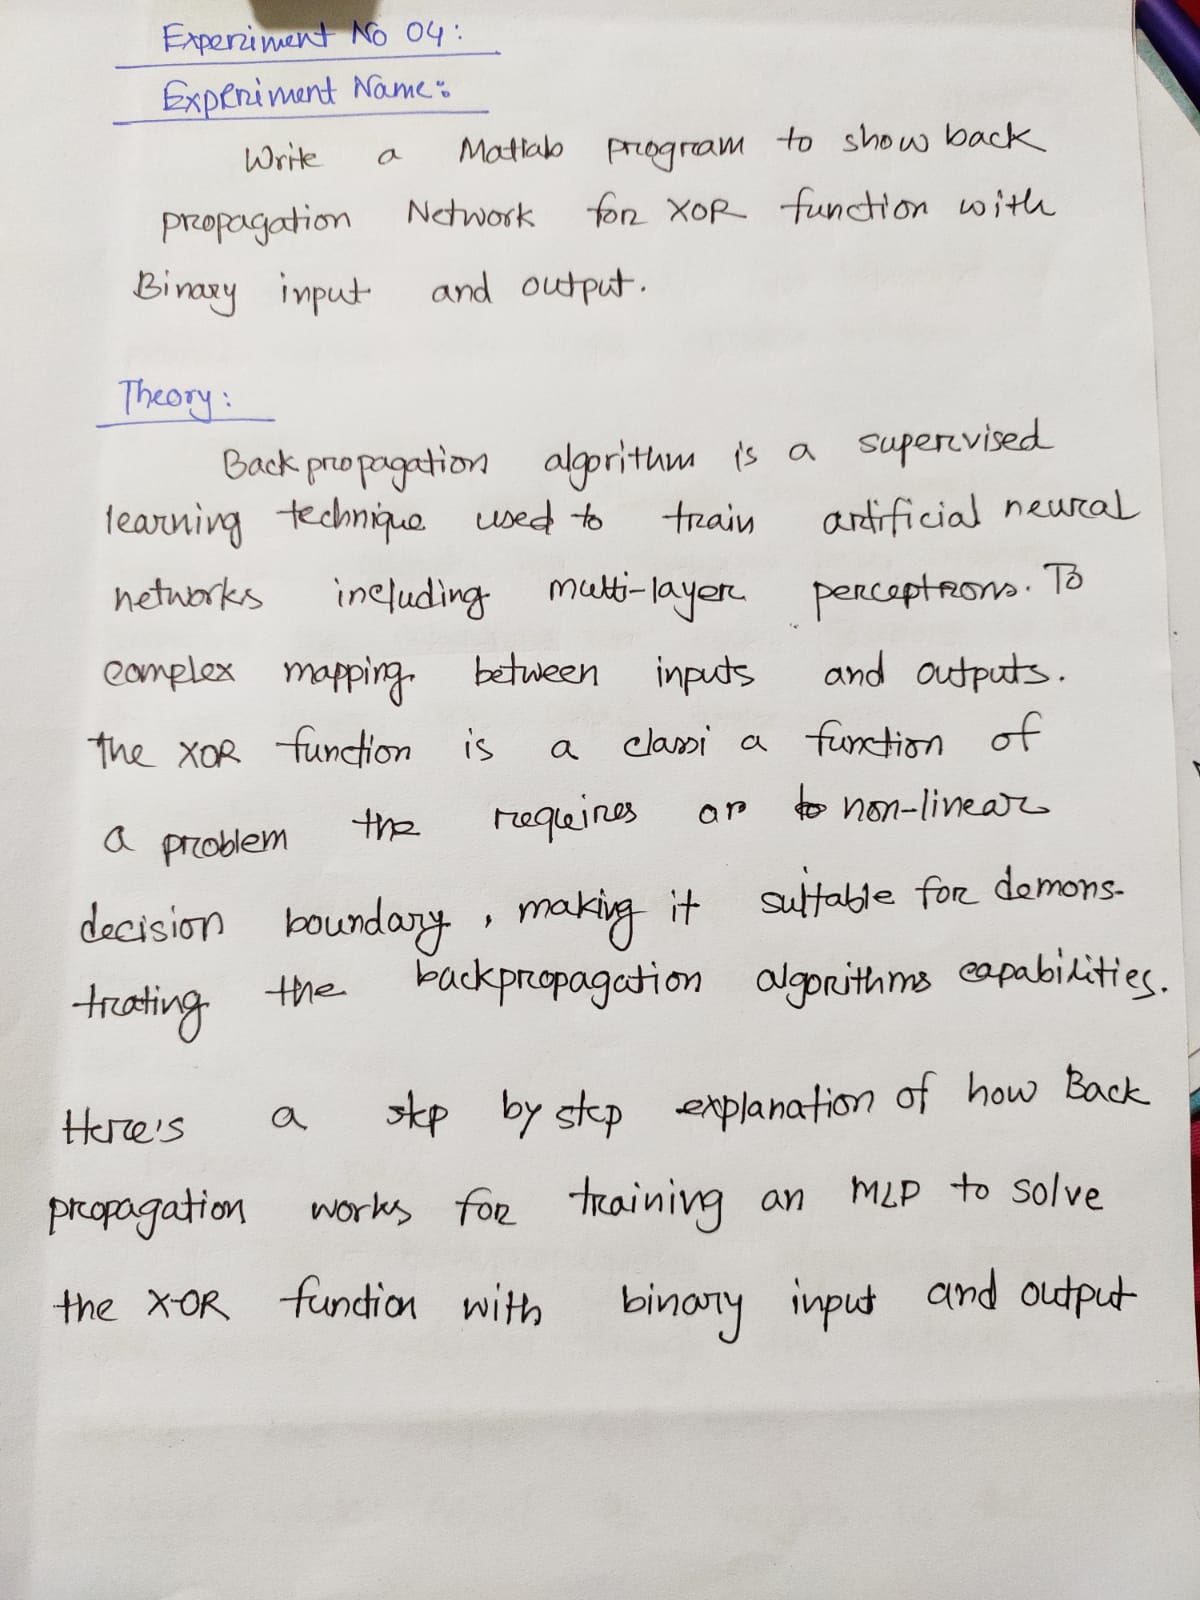 Experiment No 04:
Experiment Name:
Write a Matlab program to show back
propagation Network for XOR function with
Binary input and output.
Theory:
Back propagation algorithm is a supervised
learning technique used to train artificial neural
networks including multi-layer perceptrons. To
complex mapping between inputs and outputs.
The XOR function is a classi a function of
a problem the requires an to non-linear
decision boundary, making it suitable for demons-
trating the backpropagation algorithms capabilities.
Here's a step by step explanation of how Back
propagation works for training an MLP to solve
the X-OR function with binary input and output